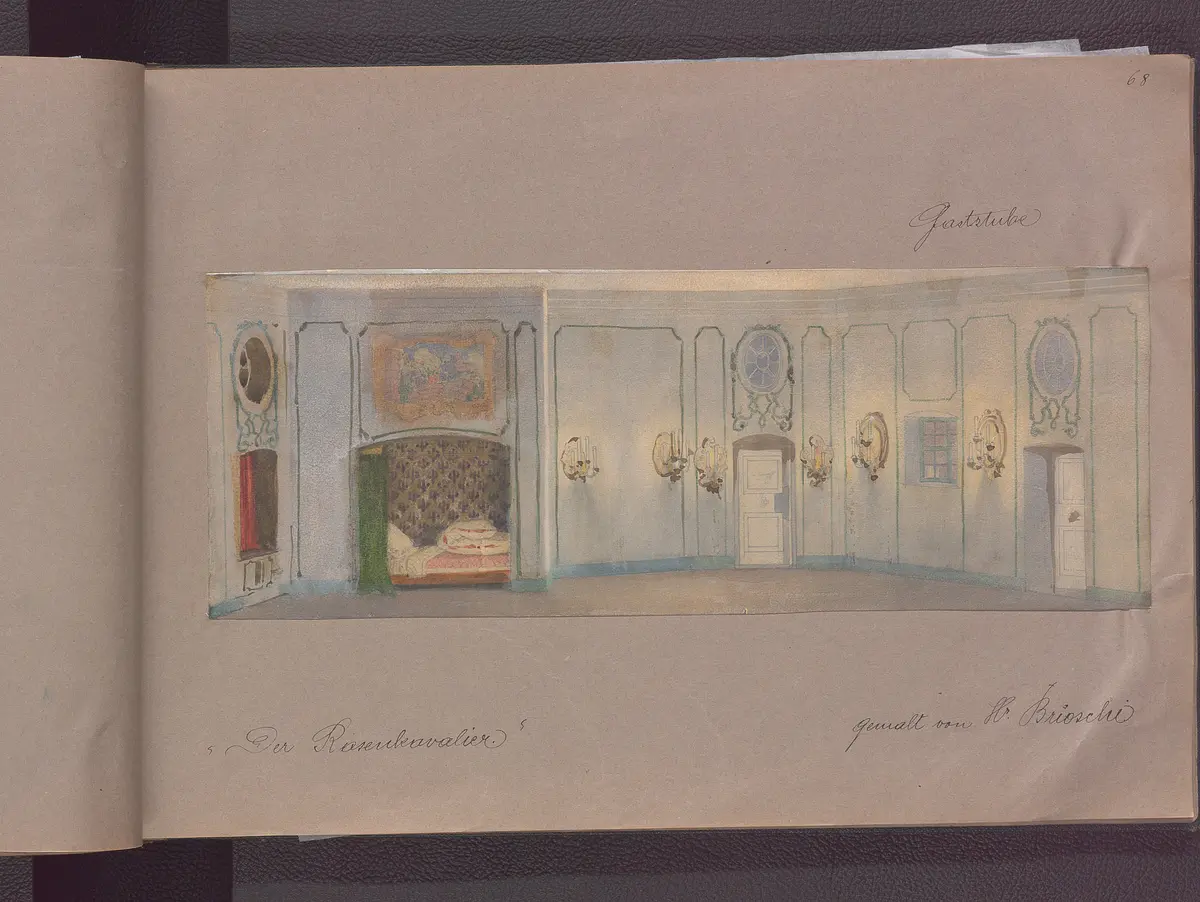 68
Gaststube
"Der Rosenkavalier"
gemalt von Hr. Brioschi